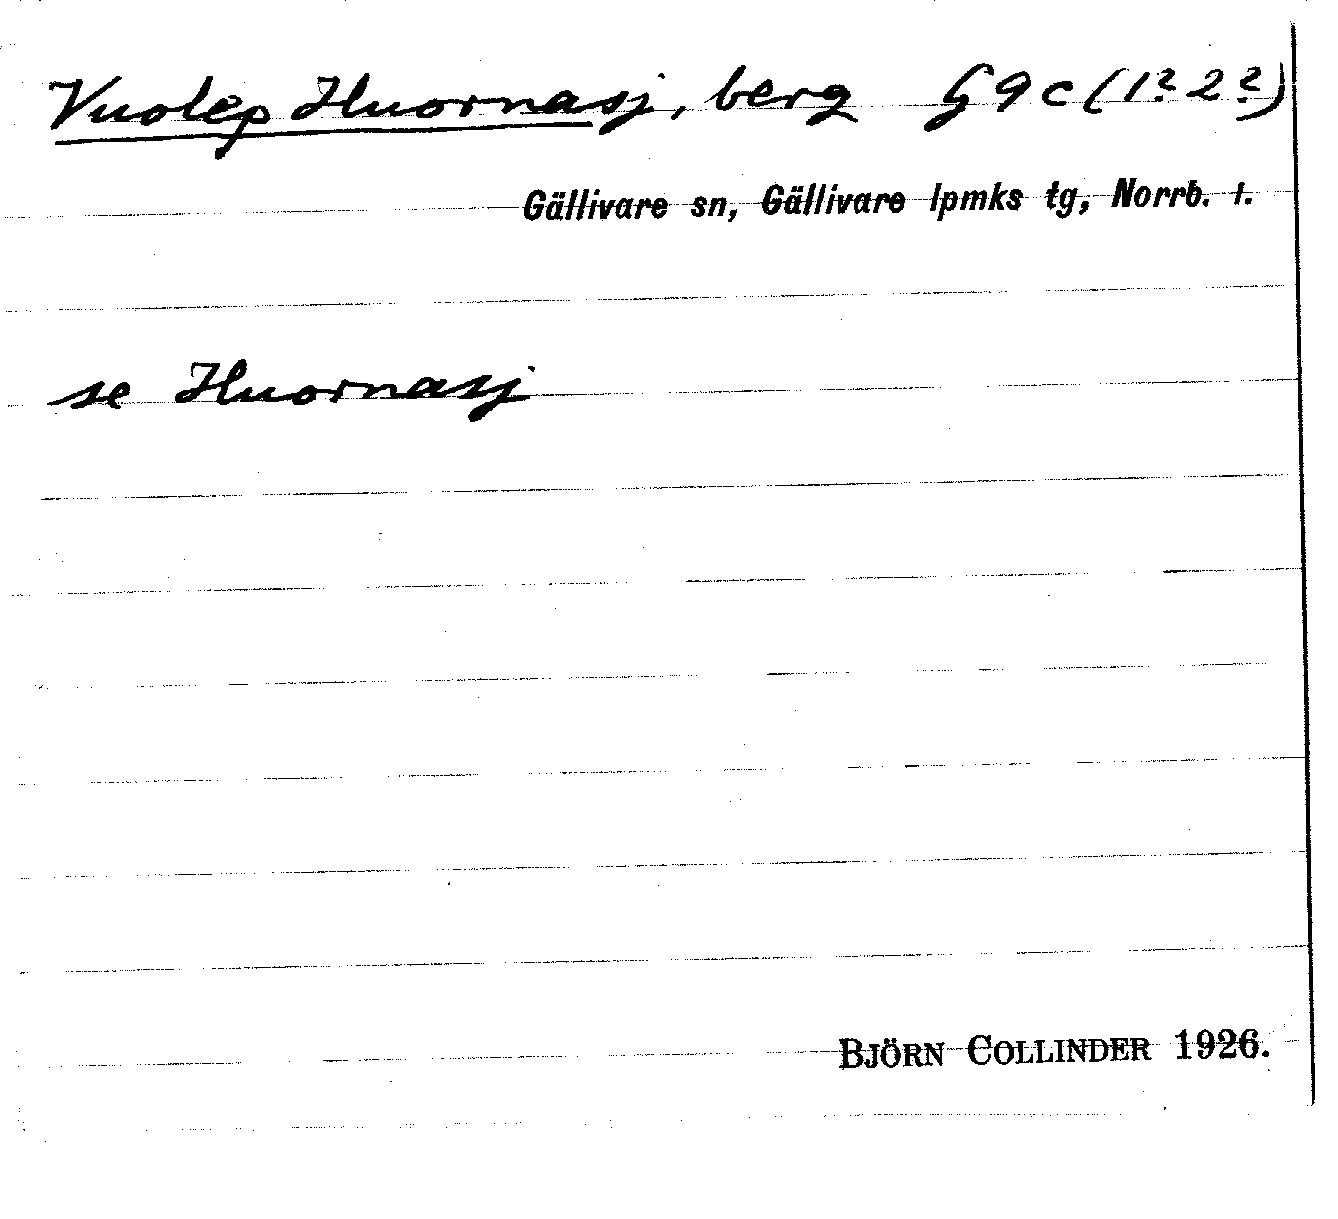 Vuolep Huornasj, berg G 9 c (1? 2?)
Gällivare sn, Gällivare lpmks tg, Norrb. l.
se Huornasj
BJÖRN COLLINDER 1926.